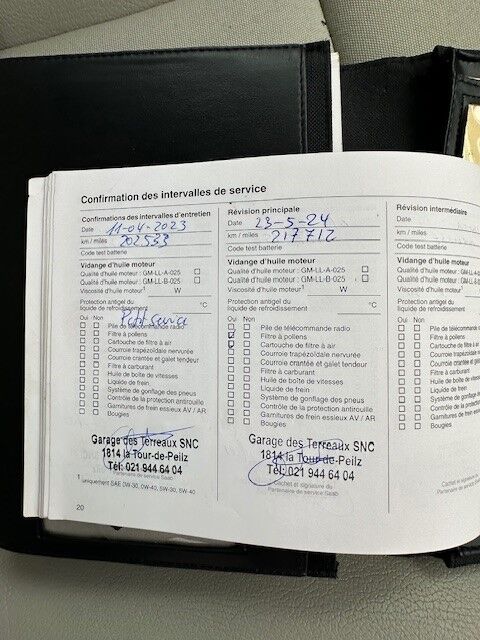 Confirmation des intervalles de service
Confirmations des intervalles d'entretien
Date 11-04-2023
km / miles 202533
Code test batterie
Vidange d'huile moteur
Qualité d'huile moteur : GM-LL-A-025
Qualité d'huile moteur : GM-LL-B-025
Viscosité d'huile moteur¹ W
Protection antigel du
liquide de refroidissement °C
Oui Non Petit Service
Pile de télécommande radio
Filtre à pollens
Cartouche de filtre à air
Courroie trapézoïdale nervurée
Courroie crantée et galet tendeur
Filtre à carburant
Huile de boîte de vitesses
Liquide de frein
Système de gonflage des pneus
Contrôle de la protection antirouille
Garnitures de frein essieux AV / AR
Bougies
Garage des Terreaux SNC
1814 la Tour-de-Peilz
Tél: 021 944 64 04
Partenaire de service Saab
1 uniquement SAE 0W-30, 0W-40, 5W-30, 5W-40
20
Révision principale
Date 23-5-24
km / miles 217712
Code test batterie
Vidange d'huile moteur
Qualité d'huile moteur : GM-LL-A-025
Qualité d'huile moteur : GM-LL-B-025
Viscosité d'huile moteur¹ W
Protection antigel du
liquide de refroidissement °C
Oui Non
Pile de télécommande radio
Filtre à pollens
Cartouche de filtre à air
Courroie trapézoïdale nervurée
Courroie crantée et galet tendeur
Filtre à carburant
Huile de boîte de vitesses
Liquide de frein
Système de gonflage des pneus
Contrôle de la protection antirouille
Garnitures de frein essieux AV / AR
Bougies
Garage des Terreaux SNC
1814 la Tour-de-Peilz
Tél: 021 944 64 04
Cachet et signature du
Partenaire de service Saab
Révision intermédiaire
Date
km / miles
Code test batterie
Vidange d'huile moteur
Qualité d'huile moteur : GM-LL
Qualité d'huile moteur : GM-LL
Viscosité d'huile moteur¹
Protection antigel du
liquide de refroidissement
Oui Non
Pile de télécommande r
Filtre à pollens
Cartouche de filtre à a
Courroie trapézoïdale
Courroie crantée et ga
Filtre à carburant
Huile de boîte de vites
Liquide de frein
Système de gonflage
Contrôle de la protec
Garnitures de frein es
Bougies
Cachet et signature
Partenaire de service